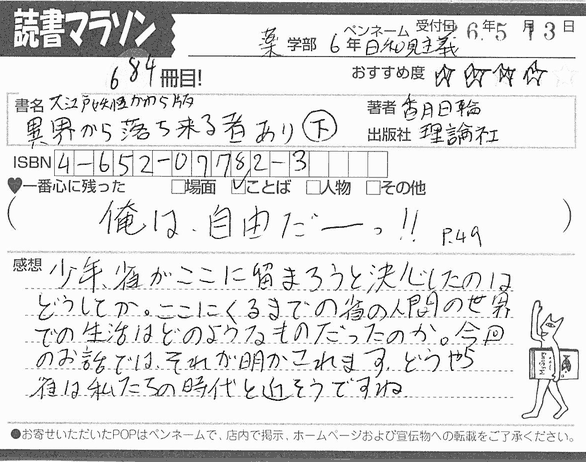 読書マラソン
薬 学部 6年 ペンネーム 日和見主義 受付日 6年5月13日
684冊目!
おすすめ度 ☆☆☆☆
書名 大江戸妖怪かわら版
異界から落ち来る者あり 下
著者 香月日輪
出版社 理論社
ISBN 4-652-07782-3
♥一番心に残った □場面 ☑ことば □人物 □その他
(俺は、自由だーっ!! P.49)
感想 少年、雀がここに留まろうと決心したのは
どうしてか。ここにくるまでの雀の人間の世界
での生活はどのようなものだったのか。今回
のお話では、それが明かされます。どうやら
雀は私たちの時代と近そうですね
●お寄せいただいたPOPはペンネームで、店内で掲示、ホームページおよび宣伝物への転載をご了承ください。